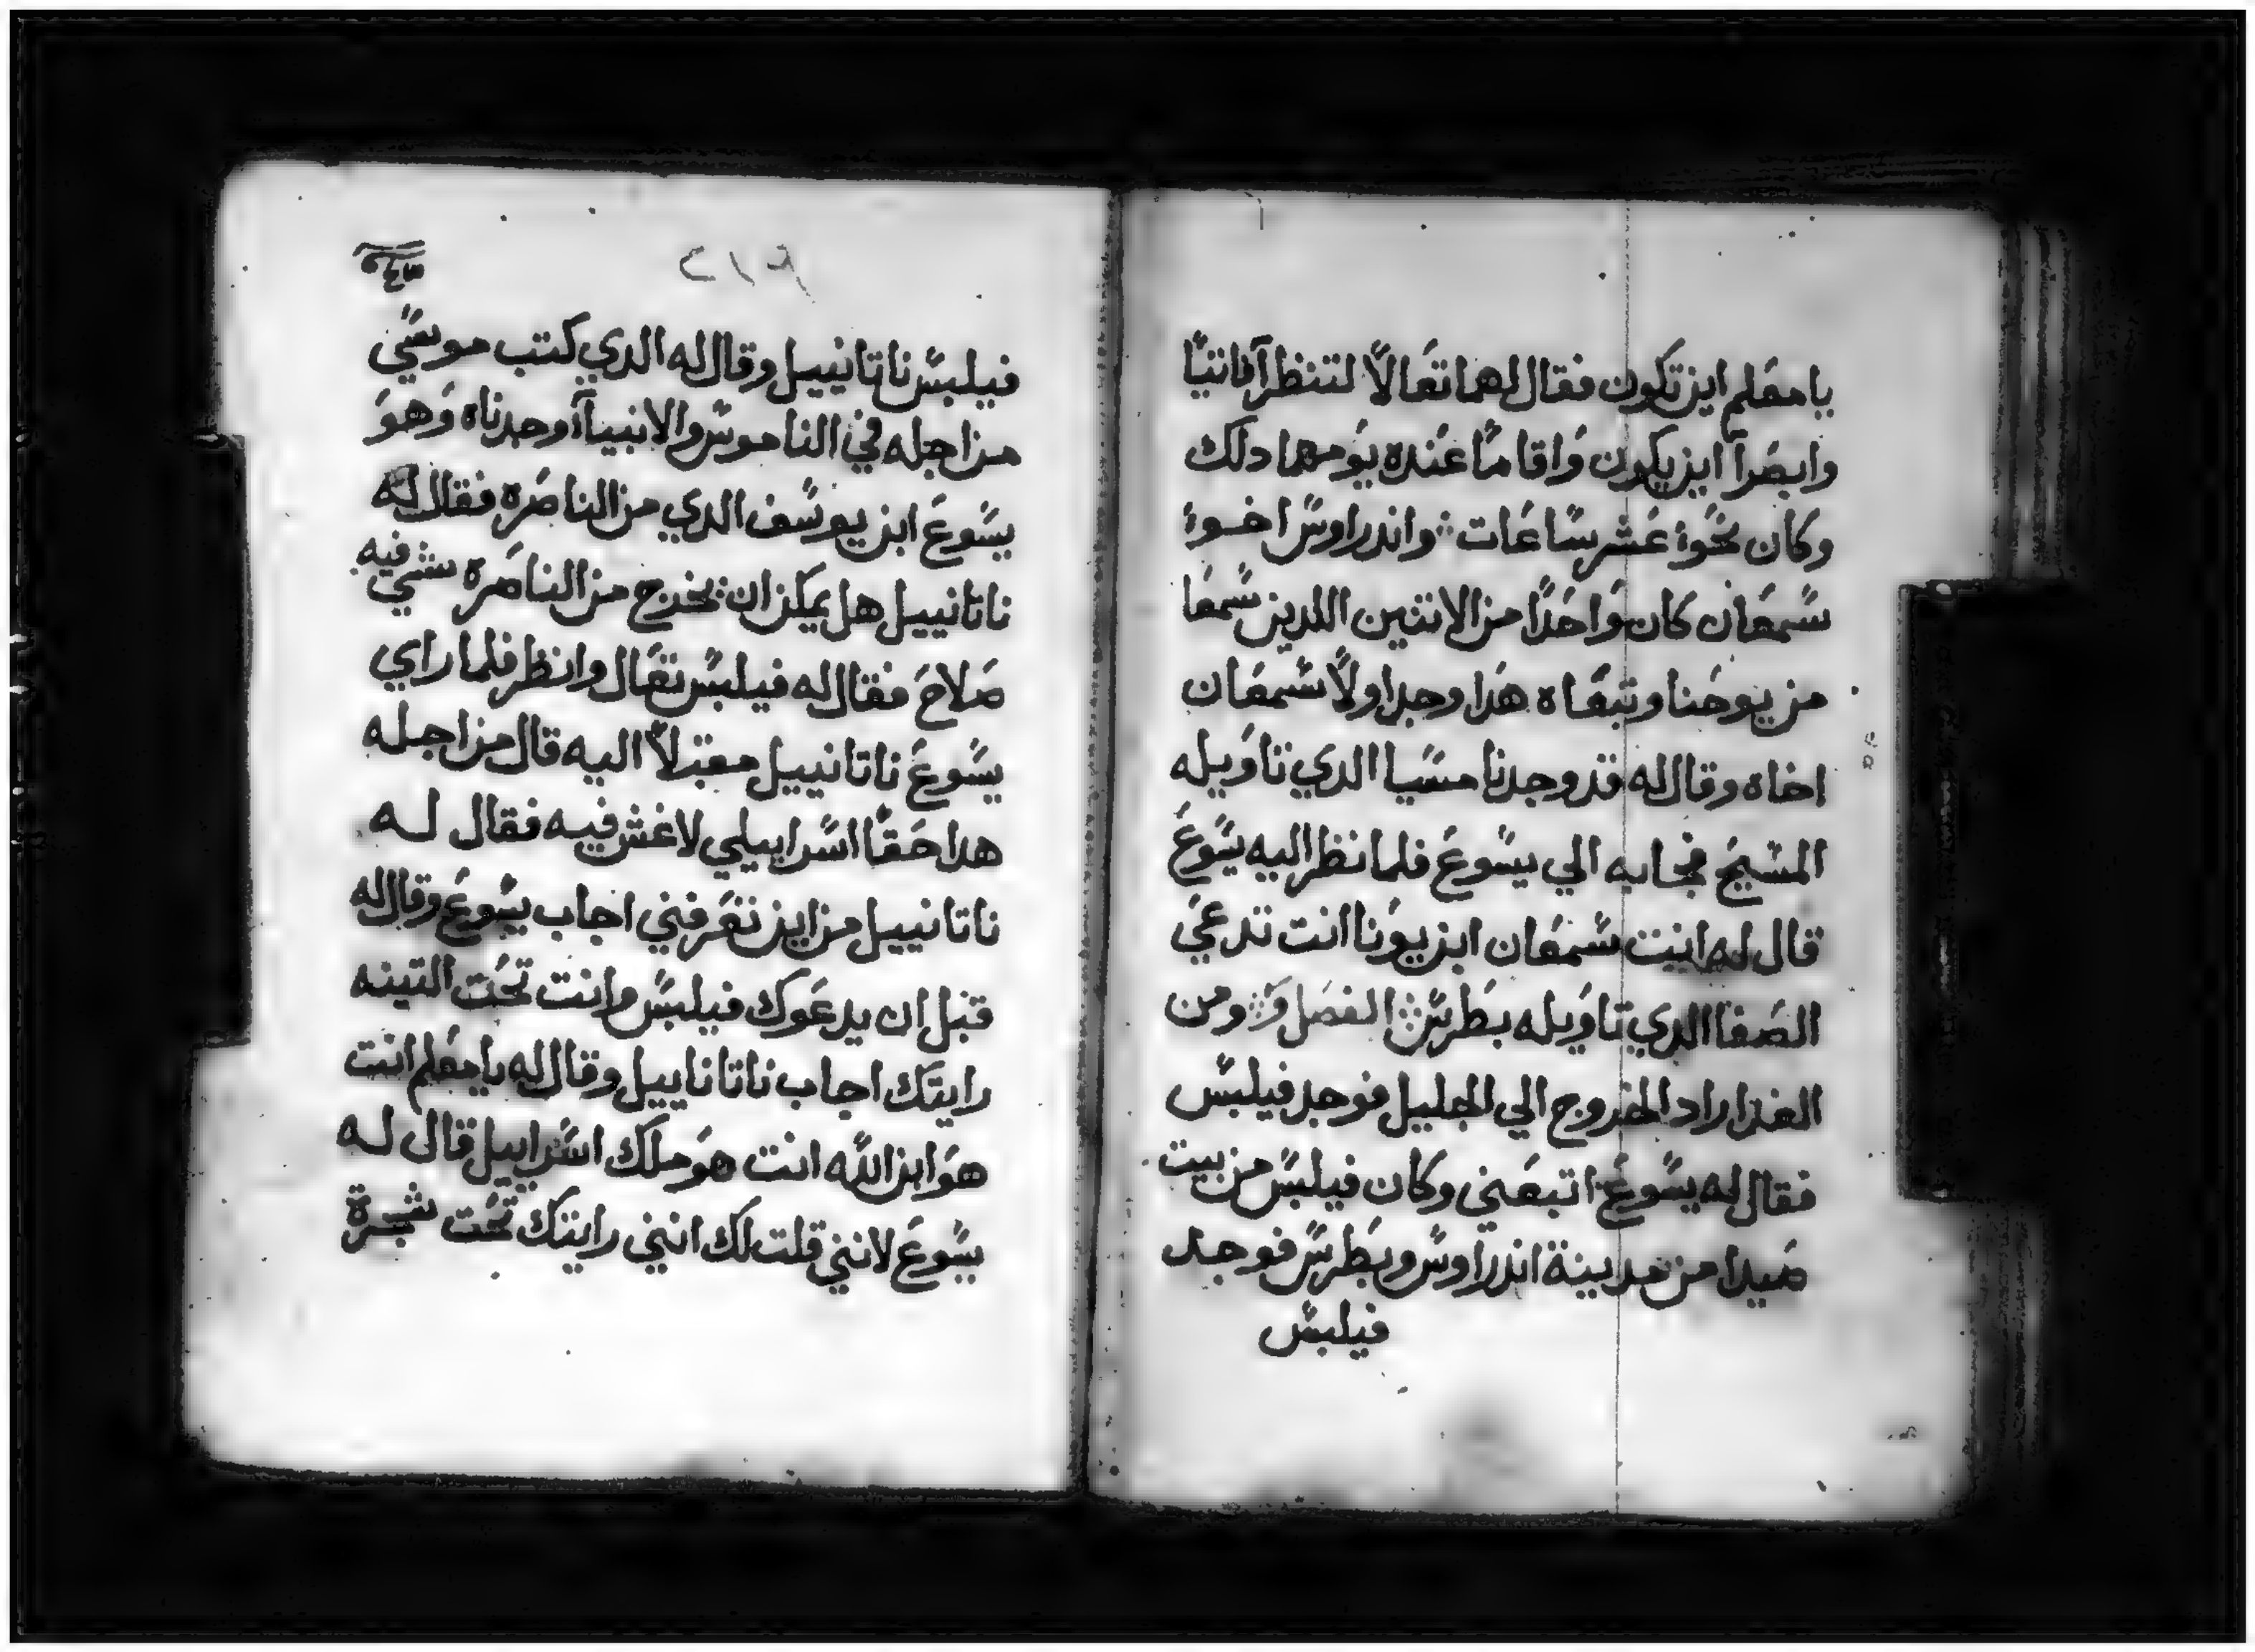 يا معلم اين تكون فقال لهما تعالا لتنظرا فاتيا
وابصرا اين يكون واقاما عنده يومهما دلك
وكان نحو عشر ساعات ؞ واندراوس اخو
سمعان كان واحدا من الاتنين اللدين سمعا
من يوحنا وتبعاه هدا وجد اولا سمعان
اخاه وقال له قد وجدنا مسيا الدي تاويله
المسيح فجا به الي يسوع فلما نظر اليه يسوع
قال له انت سمعان ابن يونا انت تدعي
الصفا الدي تاويله بطرس ؞ الفصل ؞ ومن
الغد اراد الخروج الي الجليل فوجد فيلبس
فقال له يسوع اتبعني وكان فيلبس من بيت
صيدا من مدينة اندراوس وبطرس فوجد
فيلبس
فيلبس ناتانييل وقال له الدي كتب موسي
من اجله في الناموس والانبياء وجدناه وهو
يسوع ابن يوسف الدي من الناصره فقال له
ناتانييل هل يمكن ان يخرج من الناصره شي فيه
صلاح فقال له فيلبس تعال وانظر فلما راي
يسوع ناتانييل مقبلا اليه قال من اجله
هدا حقا اسراييلي لا غش فيه فقال له
ناتانييل من اين تعرفني اجاب يسوع وقال له
قبل ان يدعوك فيلبس وانت تحت التينه
رايتك اجاب ناتاناييل وقال له يا معلم انت
هو ابن الله انت هو ملك اسراييل قال له
يسوع لانني قلت لك انني رايتك تحت شجرة